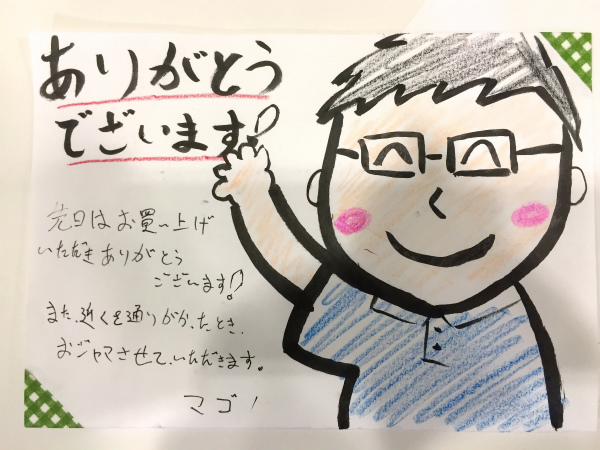 ありがとう
でございます!
先日はお買い上げ
いただきありがとう
ございます!
また、近くを通りがかったとき、
おジャマさせていただきます。
マゴ!